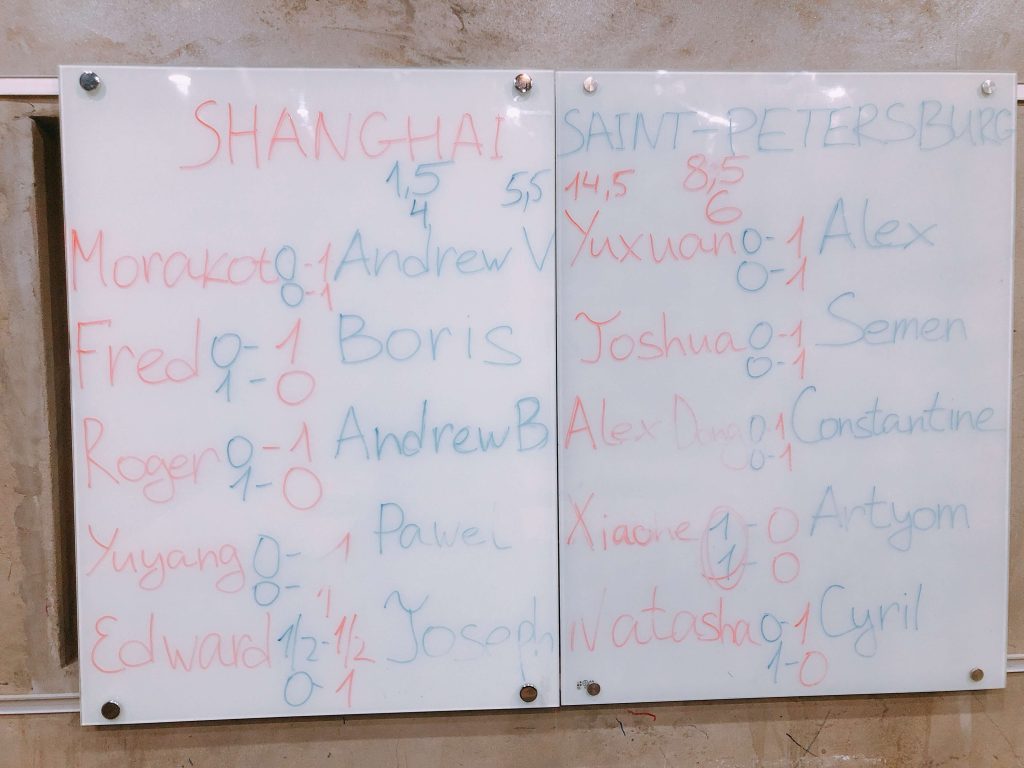 SHANGHAI SAINT-PETERSBURG
1,5 5,5 14,5 8,5
4 6
Morakot 0-1 Andrew V Yuxuan 0-1 Alex
0-1 0-1
Fred 0-1 Boris Joshua 0-1 Semen
1-0 0-1
Roger 0-1 Andrew B Alex Dang 0-1 Constantine
1-0 0-1
Yuyang 0-1 Pawel Xiaohe 1-0 Artyom
0-1 1-0
Edward 1/2-1/2 Joseph Natasha 0-1 Cyril
0-1 1-0